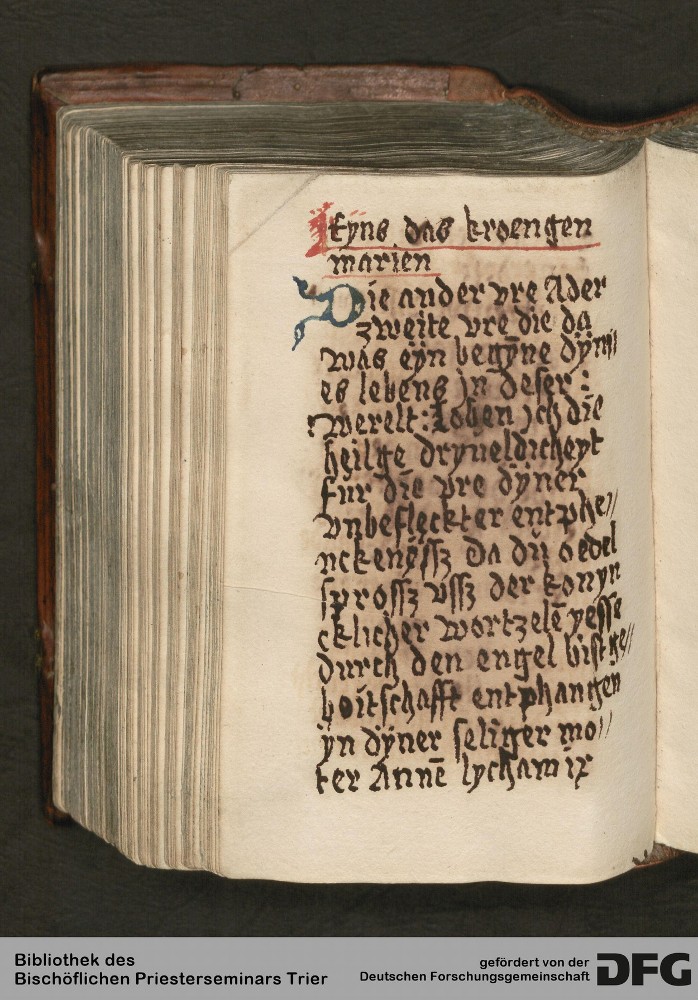 Eyns das kroengen
marien
Die ander vre Ader
zweite vre die da
was eÿn begȳne dÿnn//
es lebens jn deser :
werelt : Loben jch die
heilge dryueldicheyt
fur die vre dÿner
vnbefleckter entphe//
nckenÿssz Da dü o edel
sprossz vssz der konyn
cklicher wortzelē yesse
durch den engel bist ge//
boitschafft entphangen
ÿn dÿner seliger mo//
ter Annē lycham ix
Bibliothek des
Bischöflichen Priesterseminars Trier
gefördert von der
Deutschen Forschungsgemeinschaft
DFG